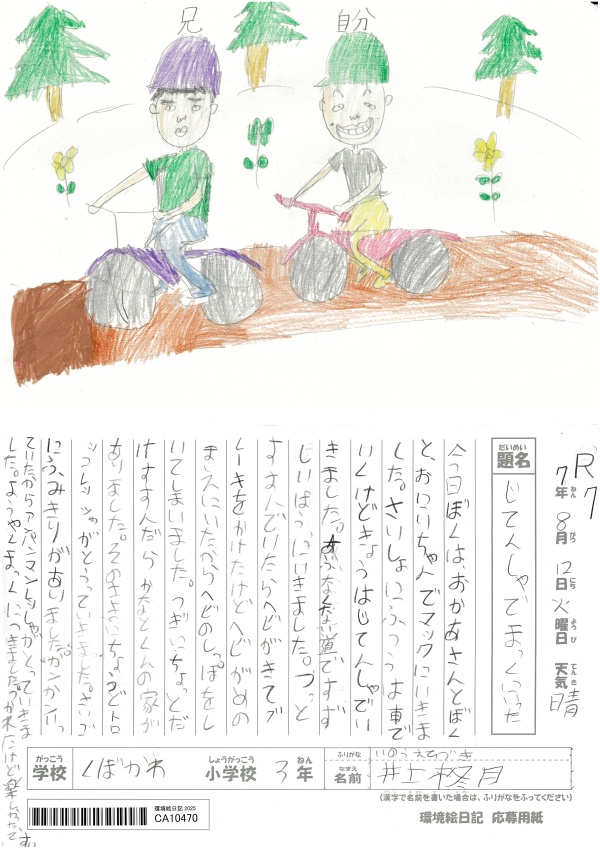 兄
自分
R7
7年 8月 12日 火曜日 天気 晴
ねん がつ にち ようび てんき
だいめい
題名
じてんしゃでまっくにいった
今日ぼくは、おかあさんとぼく
と、おにいちゃんでマックにいきま
した。さいしょにふつうは車で
いくけどきょうはじてんしゃでい
きました。あぶなくない道ですず
しいほうにいきました。ずっと
すすんでいたらヘビがきてブ
レーキをかけたけどヘビがめの
まえにいたからヘビのしっぽをし
いてしまいました。つぎにちょっとだ
けすすんだら かなとくんの家が
ありました。そのさきにちょうどトロ
ッコレッシャがとうっていきました。さいご
に、ふみきりがありました。カンカンいっ
ていたからアンパンマンレッシャがとっていきま
した。ようやくまっくにつきました。つかれたけど楽しかったです。
がっこう しょうがっこう ねん ふりがな いのうえとづき
学校 くぼかわ 小学校 3年 なまえ 名前 井上柊月
(漢字で名前を書いた場合は、ふりがなをふってください)
環境絵日記 2025
CA10470
環境絵日記 応募用紙